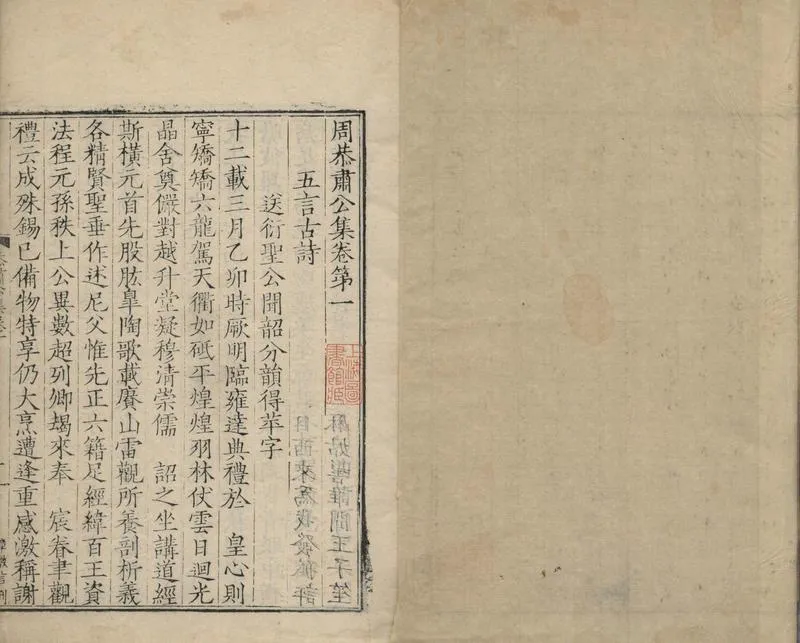 周恭肅公集卷第一
五言古詩
送衍聖公聞韶分韻得苹字
十二載三月乙卯時厥明臨雍達典禮於 皇心則
寧矯矯六龍駕天衢如砥平煌煌羽林伏雲日迴光
晶舍奠儼對越升堂凝穆清崇儒 詔之坐講道經
斯橫元首先股肱臯陶歌載賡山雷觀所養剖析義
各精賢聖垂作述尼父惟先正六籍足經緯百王資
法程元孫秩上公異數超列卿朅來奉 宸眷聿觀
禮云成殊錫已備物特享仍大烹遭逢重感激稱謝
上海圖書館藏